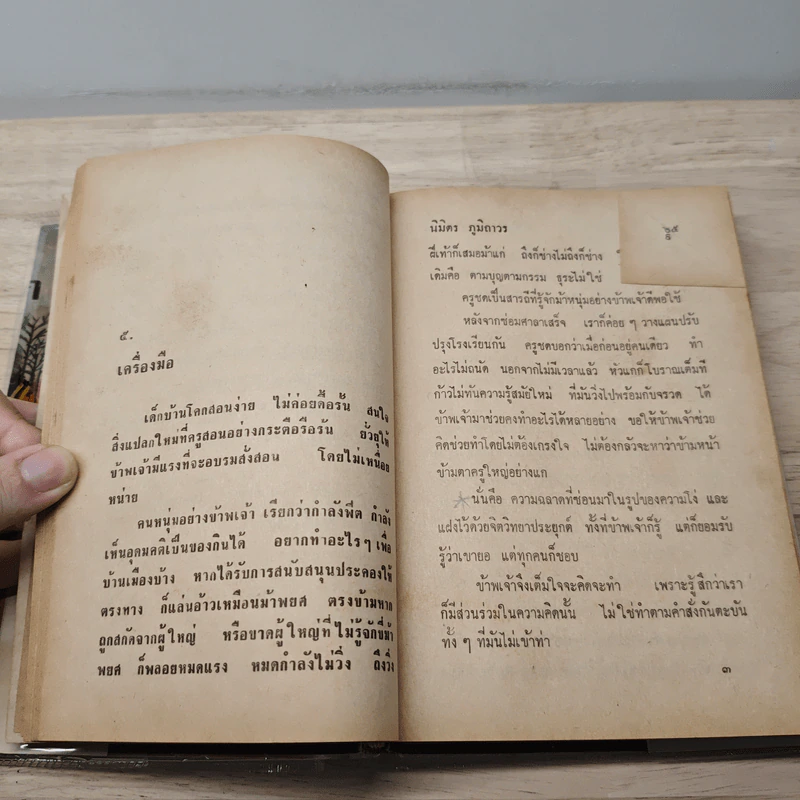 ๕.
เครื่องมือ
เด็กบ้านโคกสอนง่าย ไม่ค่อยดื้อรั้น สนใจ
สิ่งแปลกใหม่ที่ครูสอนอย่างกระตือรือร้น ยั่วยุให้
ข้าพเจ้ามีแรงที่จะอบรมสั่งสอน โดยไม่เหนื่อย
หน่าย
คนหนุ่มอย่างข้าพเจ้า เรียกว่ากำลังฟิต กำลัง
เห็นอุดมคติเป็นของกินได้ อยากทำอะไรๆ เพื่อ
บ้านเมืองบ้าง หากได้รับการสนับสนุนประคองให้
ตรงทาง ก็แล่นอ้าวเหมือนม้าพยศ ตรงข้ามหาก
ถูกสกัดจากผู้ใหญ่ หรือขาดผู้ใหญ่ที่ไม่รู้จักขี่ม้า
พยศ ก็พลอยหมดแรง หมดกำลังไม่วิ่ง ถึงวิ่ง
นิมิตร ภูมิถาวร
๖๕
ฝีเท้าก็เสมอม้าแก่ ถึงก็ช่างไม่ถึงก็ช่าง
เดิมคือ ตามบุญตามกรรม ธุระไม่ใช่
ครูชดเป็นสารถีที่รู้จักม้าหนุ่มอย่างข้าพเจ้าดีพอใช้
หลังจากซ่อมศาลาเสร็จ เราก็ค่อย ๆ วางแผนปรับ
ปรุงโรงเรียนกัน ครูชดบอกว่าเมื่อก่อนอยู่คนเดียว ทำ
อะไรไม่ถนัด นอกจากไม่มีเวลาแล้ว หัวแกก็โบราณเต็มที
ก้าวไม่ทันความรู้สมัยใหม่ ที่มันวิ่งไปพร้อมกับจรวด ได้
ข้าพเจ้ามาช่วยคงทำอะไรได้หลายอย่าง ขอให้ข้าพเจ้าช่วย
คิดช่วยทำโดยไม่ต้องเกรงใจ ไม่ต้องกลัวจะหาว่าข้ามหน้า
ข้ามตาครูใหญ่อย่างแก
นั่นคือ ความฉลาดที่ซ่อนมาในรูปของความโง่ และ
แฝงไว้ด้วยจิตวิทยาประยุกต์ ทั้งที่ข้าพเจ้าก็รู้ แต่ก็ยอมรับ
รู้ว่าเขายอ แต่ทุกคนก็ชอบ
ข้าพเจ้าจึงเต็มใจจะคิดจะทำ เพราะรู้สึกว่าเรา
ก็มีส่วนร่วมในความคิดนั้น ไม่ใช่ทำตามคำสั่งกันตะบัน
ทั้ง ๆ ที่มันไม่เข้าท่า
๓